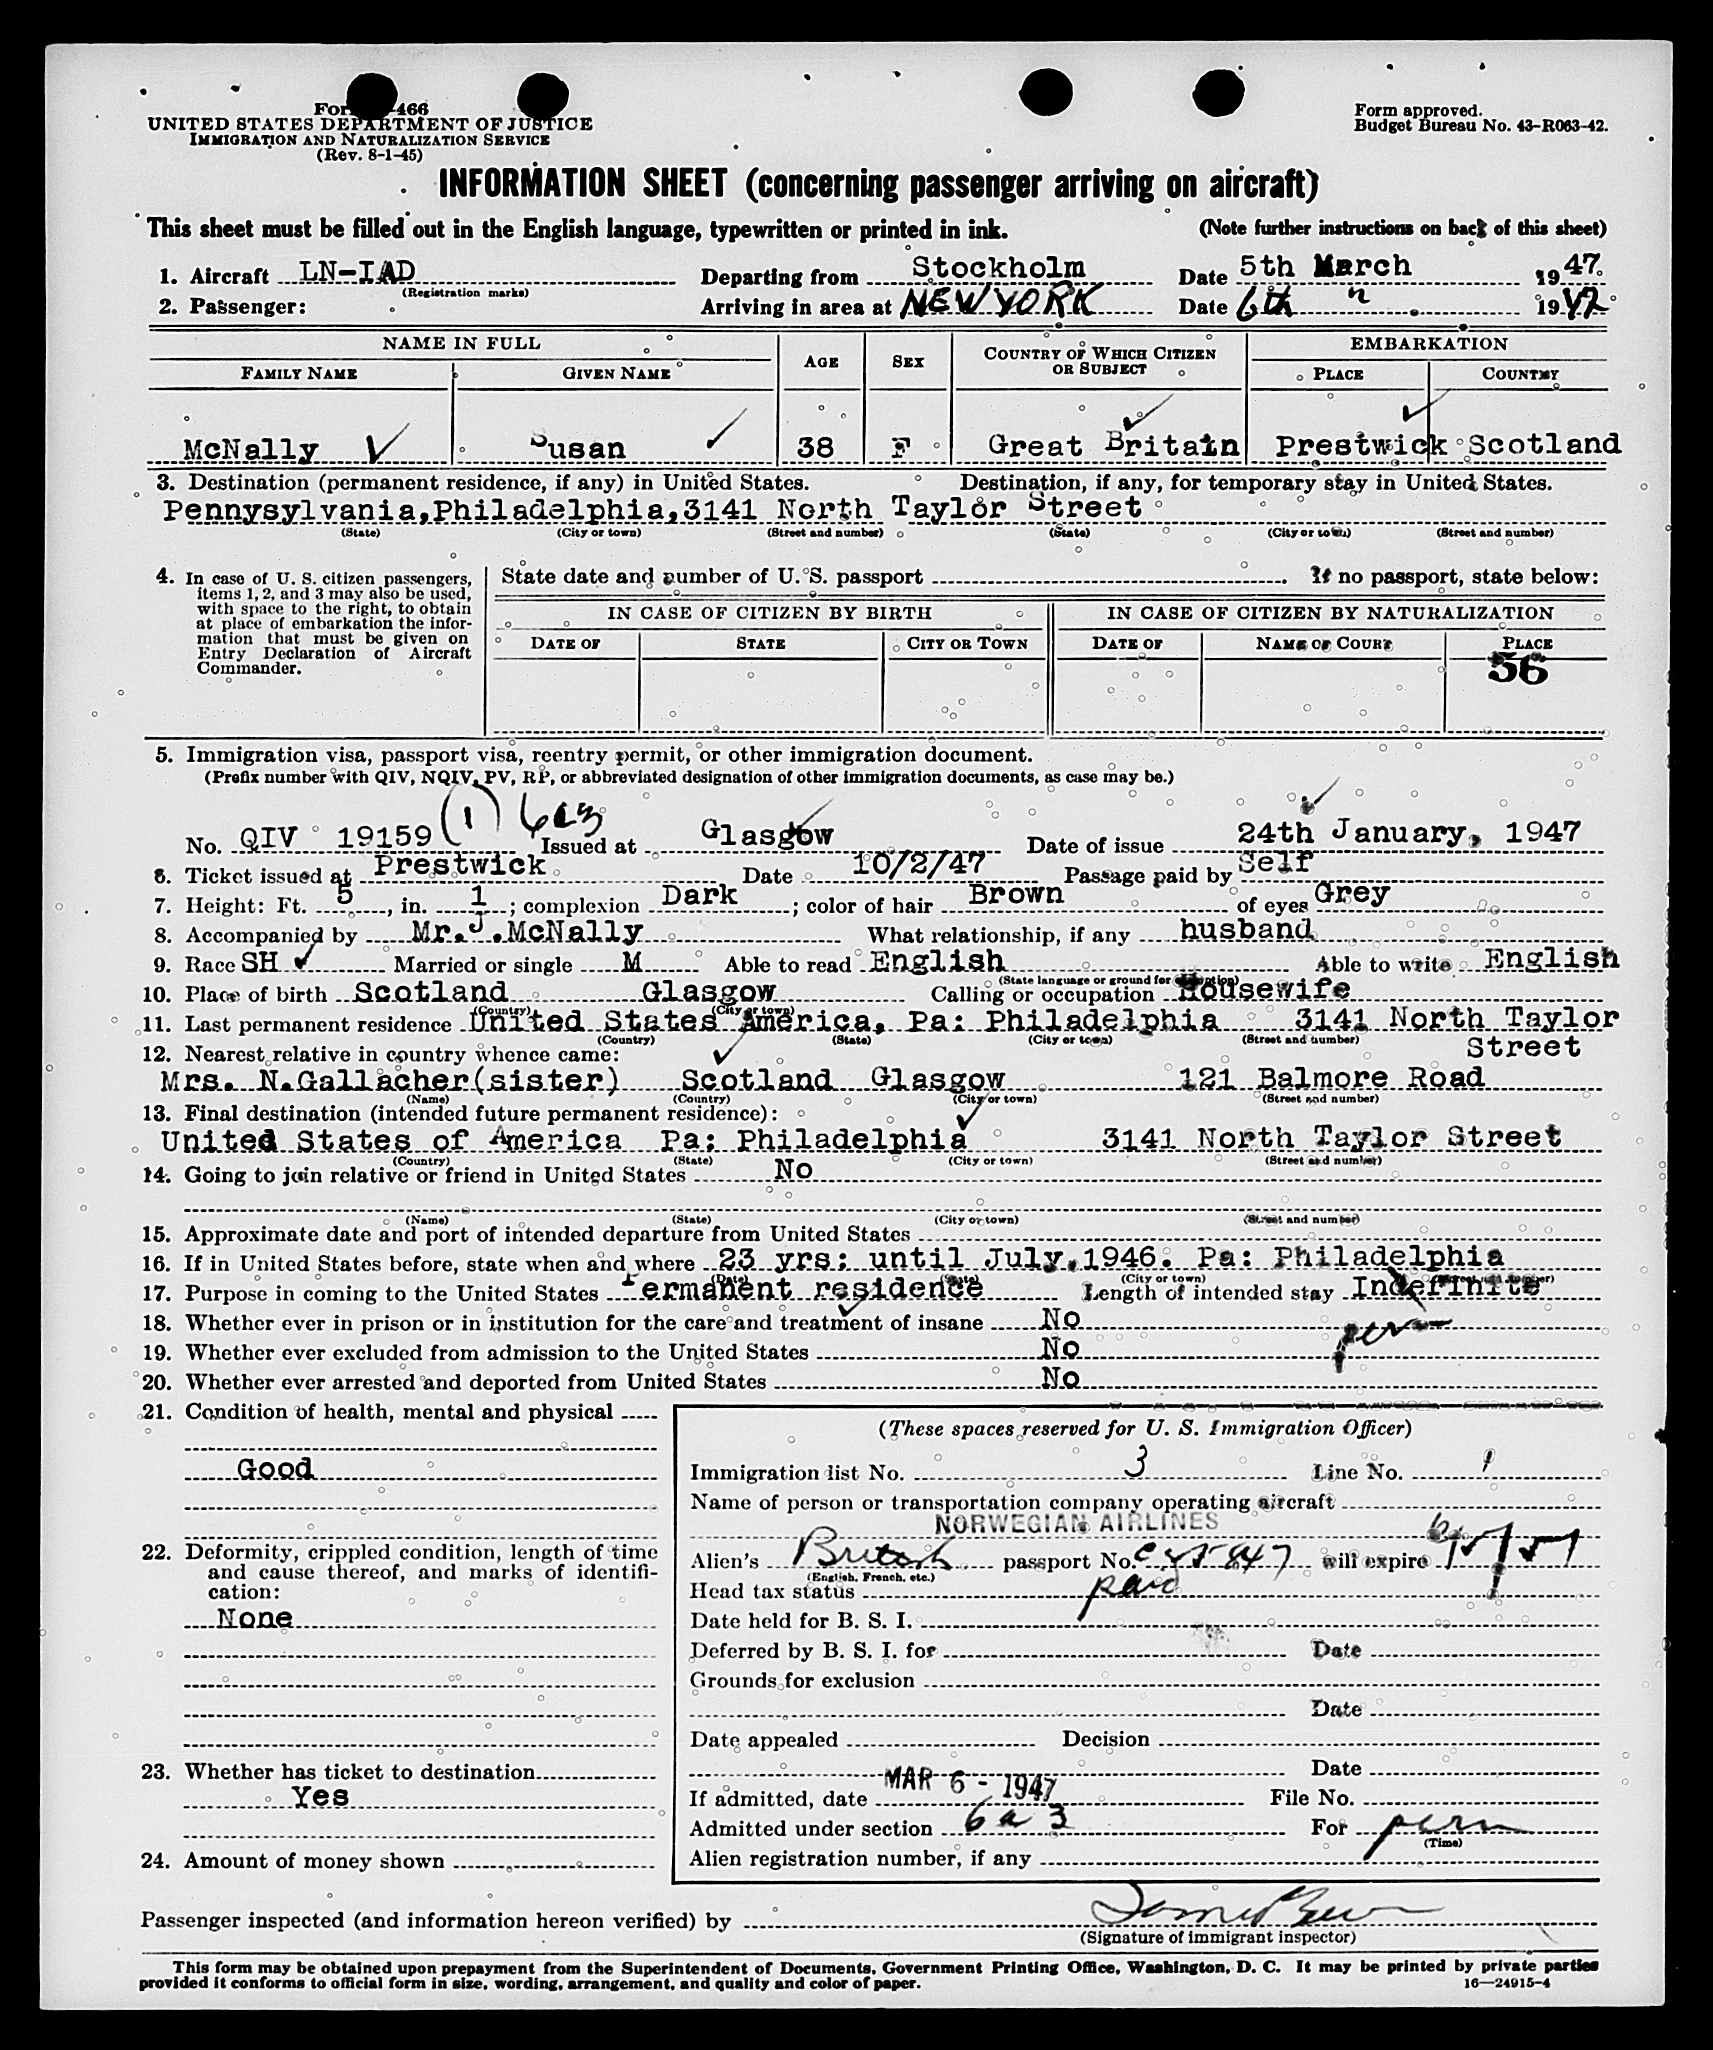 Form -466
UNITED STATES DEPARTMENT OF JUSTICE
IMMIGRATION AND NATURALIZATION SERVICE
(Rev. 8-1-45)
Form approved.
Budget Bureau No. 43-R063-42.
INFORMATION SHEET (concerning passenger arriving on aircraft)
This sheet must be filled out in the English language, typewritten or printed in ink. (Note further instructions on back of this sheet)
1. Aircraft LN-IAD Departing from Stockholm Date 5th March 1947.
(Registration marks)
2. Passenger: Arriving in area at NEW YORK Date 6th " 1947
NAME IN FULL AGE SEX COUNTRY OF WHICH CITIZEN OR SUBJECT EMBARKATION
FAMILY NAME GIVEN NAME PLACE COUNTRY
McNally Susan 38 F Great Britain Prestwick Scotland
3. Destination (permanent residence, if any) in United States. Destination, if any, for temporary stay in United States.
Pennysylvania,Philadelphia,3141 North Taylor Street
(State) (City or town) (Street and number) (State) (City or town) (Street and number)
4. In case of U. S. citizen passengers, items 1, 2, and 3 may also be used, with space to the right, to obtain at place of embarkation the information that must be given on Entry Declaration of Aircraft Commander.
State date and number of U. S. passport . If no passport, state below:
IN CASE OF CITIZEN BY BIRTH IN CASE OF CITIZEN BY NATURALIZATION
DATE OF STATE CITY OR TOWN DATE OF NAME OF COURT PLACE
56
5. Immigration visa, passport visa, reentry permit, or other immigration document.
(Prefix number with QIV, NQIV, PV, RP, or abbreviated designation of other immigration documents, as case may be.)
No. QIV 19159 (1) 6a3 Issued at Glasgow Date of issue 24th January, 1947
6. Ticket issued at Prestwick Date 10/2/47 Passage paid by Self
7. Height: Ft. 5, in. 1; complexion Dark; color of hair Brown of eyes Grey
8. Accompanied by Mr.J.McNally What relationship, if any husband
9. Race SH Married or single M Able to read English Able to write English
(State language or ground for exemption)
10. Place of birth Scotland Glasgow Calling or occupation Housewife
(Country) (City or town)
11. Last permanent residence United States America, Pa: Philadelphia 3141 North Taylor Street
(Country) (State) (City or town) (Street and number)
12. Nearest relative in country whence came:
Mrs. N.Gallacher(sister) Scotland Glasgow 121 Balmore Road
(Name) (Country) (City or town) (Street and number)
13. Final destination (intended future permanent residence):
United States of America Pa: Philadelphia 3141 North Taylor Street
(Country) (State) (City or town) (Street and number)
14. Going to join relative or friend in United States No
(Name) (State) (City or town) (Street and number)
15. Approximate date and port of intended departure from United States
16. If in United States before, state when and where 23 yrs: until July,1946. Pa: Philadelphia
(Date) (State) (City or town) (Street and number)
17. Purpose in coming to the United States Permanent residence Length of intended stay Indefinite
perm
18. Whether ever in prison or in institution for the care and treatment of insane No
19. Whether ever excluded from admission to the United States No
20. Whether ever arrested and deported from United States No
21. Condition of health, mental and physical
Good
22. Deformity, crippled condition, length of time and cause thereof, and marks of identification:
None
23. Whether has ticket to destination
Yes
24. Amount of money shown
(These spaces reserved for U. S. Immigration Officer)
Immigration list No. 3 Line No. 1
Name of person or transportation company operating aircraft
NORWEGIAN AIRLINES
Alien's British passport No. will expire
(English, French, etc.)
Head tax status paid
Date held for B. S. I.
Deferred by B. S. I. for Date
Grounds for exclusion
Date
Date appealed Decision
Date
If admitted, date MAR 6 - 1947 File No.
Admitted under section 6a3 For perm
(Time)
Alien registration number, if any
Passenger inspected (and information hereon verified) by
(Signature of immigrant inspector)
This form may be obtained upon prepayment from the Superintendent of Documents, Government Printing Office, Washington, D. C. It may be printed by private parties
provided it conforms to official form in size, wording, arrangement, and quality and color of paper. 16—24915-4